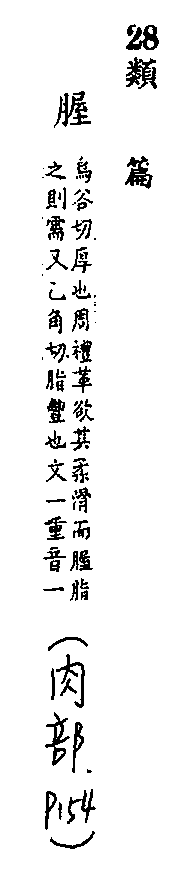 28類篇
腛
烏谷切厚也周禮革欲其柔滑而腛脂
之則需又乙角切脂豐也文一重音一
（肉部.P154）